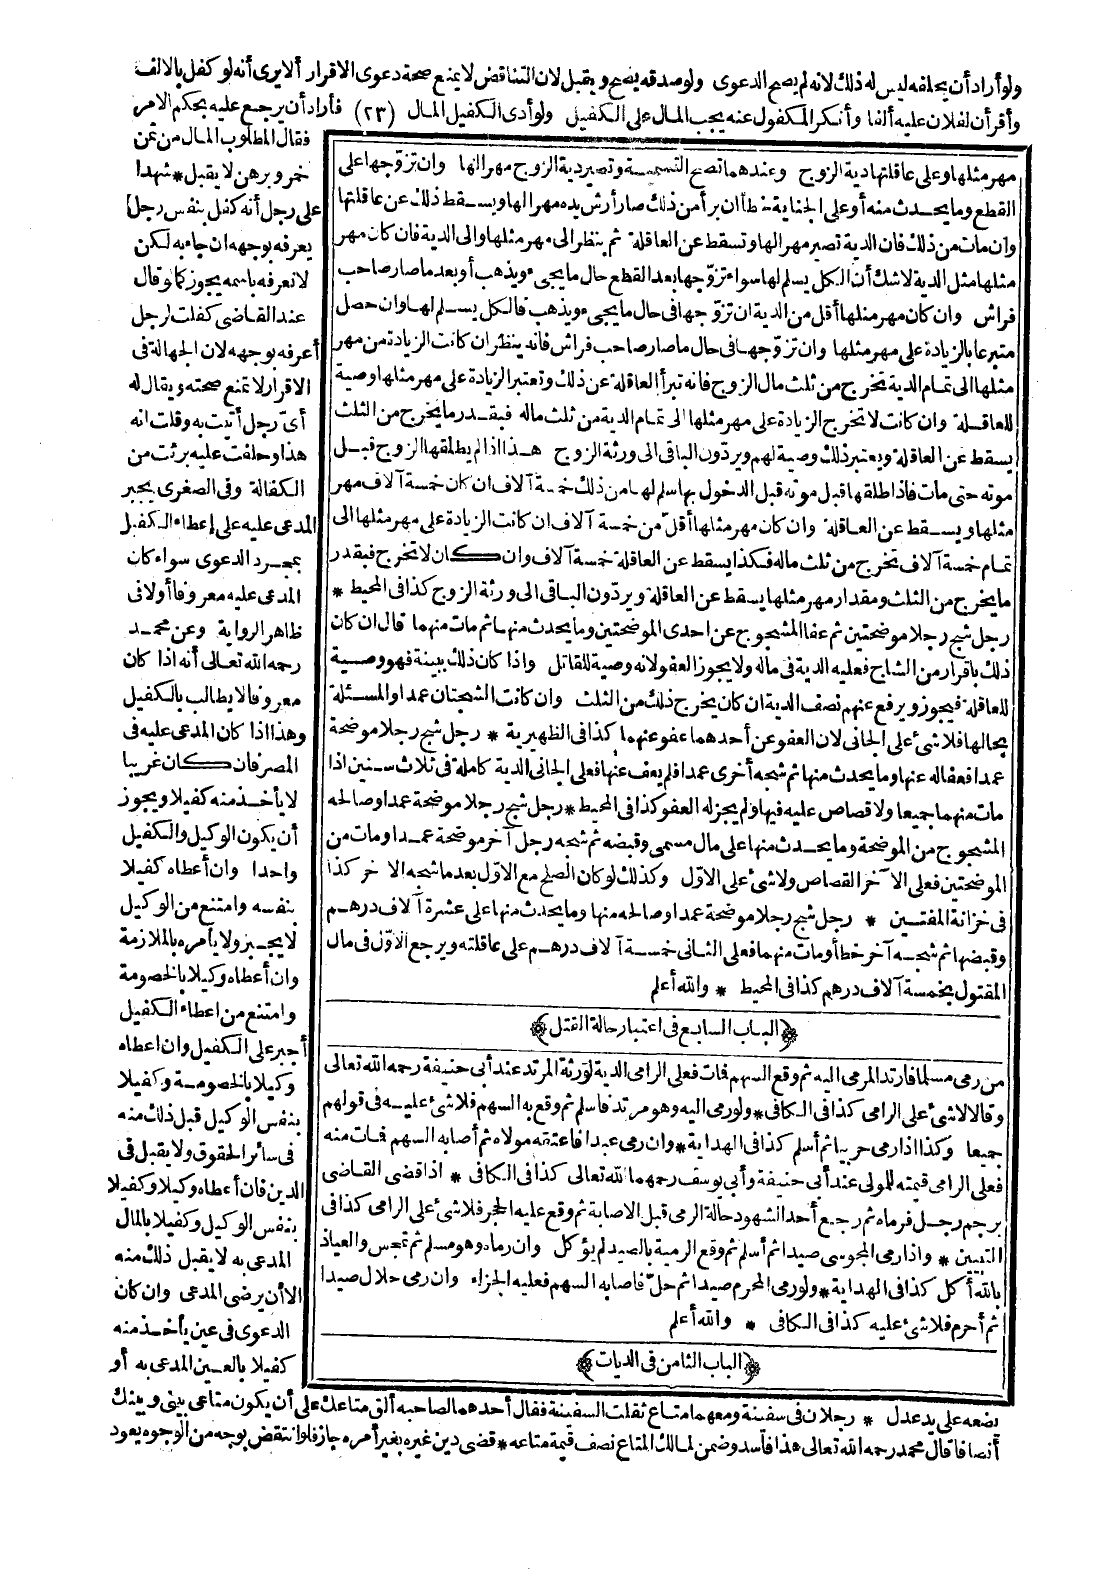 ولو أراد أن يحلفه ليس له ذلك لانه لم يصح الدعوى ولو صدقه يصح ويقبل لان التناقض لا يمنع صحة دعوى الاقرار ألا يرى أنه لو كفل بالالف
وأقر أن لفلان عليه ألفا وأنكر المكفول عنه يجب المال على الكفيل ولو أدى الكفيل المال (٢٣) فأراد أن يرجع عليه بحكم الامر
فقال المطلوب المال من ثمن
خمر وبرهن لا يقبل * شهدا
على رجل أنه كفل بنفس رجل
يعرفه بوجهه ان جاء به لكن
لا نعرفه باسمه يجوز كما لو قال
عند القاضى كفلت لرجل
أعرفه بوجهه لان الجهالة فى
الاقرار لا تمنع صحته ويقال له
أى رجل أتيت به وقلت انه
هذا وحلفت عليه برئت من
الكفالة وفى الصغرى يجبر
المدعى عليه على إعطاء الكفيل
بمجرد الدعوى سواء كان
المدعى عليه معروفا أو لا فى
ظاهر الرواية وعن محمد
رحمه الله تعالى أنه اذا كان
معروفا لا يطالب بالكفيل
وهذا اذا كان المدعى عليه فى
المصر فان كان غريبا
لا يأخذ منه كفيلا ويجوز
أن يكون الوكيل والكفيل
واحدا وان أعطاه كفيلا
بنفسه وامتنع من الوكيل
لا يجبر ولا يأمره بالملازمة
وان أعطاه وكيلا بالخصومة
وامتنع من اعطاء الكفيل
أجبر على الكفيل وان اعطاه
وكيلا بالخصومة وكفيلا
بنفس الوكيل قبل ذلك منه
فى سائر الحقوق ولا يقبل فى
الدين فان أعطاه وكيلا وكفيلا
بنفس الوكيل وكفيلا بالمال
المدعى به لا يقبل ذلك منه
الا أن يرضى المدعى وان كان
الدعوى فى عين يأخذ منه
كفيلا بالعين المدعى به أو
مهر مثلها وعلى عاقلتها دية الزوج وعندهما تصح التسمية وتصير دية الزوج مهرا لها وان تزوّجها على
القطع وما يحدث منه أو على الجناية خطأ ان برأ من ذلك صار أرش يده مهرا لها ويسقط ذلك عن عاقلتها
وان مات من ذلك فان الدية تصير مهرا لها وتسقط عن العاقلة ثم ينظر الى مهر مثلها والى الدية فان كان مهر
مثلها مثل الدية لا شك أن الكل يسلم لها سواء تزوّجها بعد القطع حال ما يجىء ويذهب أو بعد ما صار صاحب
فراش وان كان مهر مثلها أقل من الدية ان تزوّجها فى حال ما يجىء ويذهب فالكل يسلم لها وان حصل
متبرعا بالزيادة على مهر مثلها وان تزوّجها فى حال ما صار صاحب فراش فانه ينظر ان كانت الزيادة من مهر
مثلها الى تمام الدية تخرج من ثلث مال الزوج فانه تبرأ العاقلة عن ذلك وتعتبر الزيادة على مهر مثلها وصية
للعاقلة وان كانت لا تخرج الزيادة على مهر مثلها الى تمام الدية من ثلث ماله فبقدر ما يخرج من الثلث
يسقط عن العاقلة ويعتبر ذلك وصية لهم ويردّون الباقى الى ورثة الزوج هذا اذا لم يطلقها الزوج قبل
موته حتى مات فاذا طلقها قبل موته قبل الدخول بها سلم لها من ذلك خمسة آلاف ان كان خمسة آلاف مهر
مثلها ويسقط عن العاقلة وان كان مهر مثلها أقلّ من خمسة آلاف ان كانت الزيادة على مهر مثلها الى
تمام خمسة آلاف تخرج من ثلث ماله فكذا يسقط عن العاقلة خمسة آلاف وان كان لا تخرج فبقدر
ما يخرج من الثلث ومقدار مهر مثلها يسقط عن العاقلة ويردّون الباقى الى ورثة الزوج كذا فى المحيط *
رجل شج رجلا موضحتين ثم عفا المشجوج عن احدى الموضحتين وما يحدث منها ثم مات منهما قال ان كان
ذلك باقرار من الشاج فعليه الدية فى ماله ولا يجوز العفو لانه وصية للقاتل واذا كان ذلك ببينة فهو وصية
للعاقلة فيجوز ويرفع عنهم نصف الدية ان كان يخرج ذلك من الثلث وان كانت الشجتان عمدا والمسئلة
بحالها فلا شئ على الجانى لان العفو عن أحدهما عفو عنهما كذا فى الظهيرية * رجل شج رجلا موضحة
عمدا فعفا له عنها وما يحدث منها ثم شجه أخرى عمدا فلم يعف عنها فعلى الجانى الدية كاملة فى ثلاث سنين اذا
مات منهما جميعا ولا قصاص عليه فيها ولم يجز له العفو كذا فى المحيط * رجل شج رجلا موضحة عمدا وصالحه
المشجوج من الموضحة وما يحدث منها على مال مسمى وقبضه ثم شجه رجل آخر موضحة عمدا ومات من
الموضحتين فعلى الآخر القصاص ولا شئ على الاوّل وكذلك لو كان الصلح مع الاوّل بعد ما شجه الآخر كذا
فى خزانة المفتين * رجل شج رجلا موضحة عمدا وصالحه منها وما يحدث منها على عشرة آلاف درهم
وقبضها ثم شجه آخر خطأ ومات منهما فعلى الثانى خمسة آلاف درهم على عاقلته ويرجع الاوّل فى مال
المقتول بخمسة آلاف درهم كذا فى المحيط * والله أعلم
﴿الباب السابع فى اعتبار حالة القتل﴾
من رمى مسلما فارتد المرمى اليه ثم وقع السهم فمات فعلى الرامى الدية لورثة المرتد عند أبى حنيفة رحمه الله تعالى
وقالا لا شئ على الرامى كذا فى الكافى * ولو رمى اليه وهو مرتد فأسلم ثم وقع به السهم فلا شئ عليه فى قولهم
جميعا وكذا اذا رمى حربيا ثم أسلم كذا فى الهداية * وان رمى عبدا فاعتقه مولاه ثم أصابه السهم فمات منه
فعلى الرامى قيمته للمولى عند أبى حنيفة وأبى يوسف رحمهما الله تعالى كذا فى الكافى * اذا قضى القاضى
برجم رجل فرماه ثم رجع أحد الشهود حالة الرمى قبل الاصابة ثم وقع عليه الحجر فلا شئ على الرامى كذا فى
التبيين * واذا رمى المجوسى صيدا ثم أسلم ثم وقع الرمية بالصيد لم يؤكل وان رماه وهو مسلم ثم تمجس والعياذ
بالله أكل كذا فى الهداية * ولو رمى المحرم صيدا ثم حلّ فاصابه السهم فعليه الجزاء وان رمى حلال صيدا
ثم أحرم فلا شئ عليه كذا فى الكافى * والله أعلم
﴿الباب الثامن فى الديات﴾
يضعه على يد عدل * رجلان فى سفينة ومعهما متاع ثقلت السفينة فقال أحدهما لصاحبه ألق متاعك على أن يكون متاعى بينى وبينك
أنصافا قال محمد رحمه الله تعالى هذا فاسد وضمن لمالك المتاع نصف قيمة متاعه * قضى دين غيره بغير أمره جاز فلو انتقض بوجه من الوجوه يعود